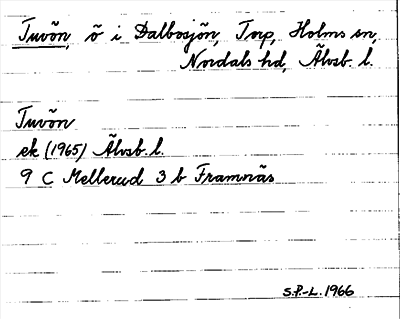 Tuvön, ö i Dalbosjön, Torp, Holms sn,
Nordals hd, Älvsb. l.
Tuvön
ek (1965) Älvsb. l.
9 C Mellerud 3 b Framnäs
S.P.-L. 1966